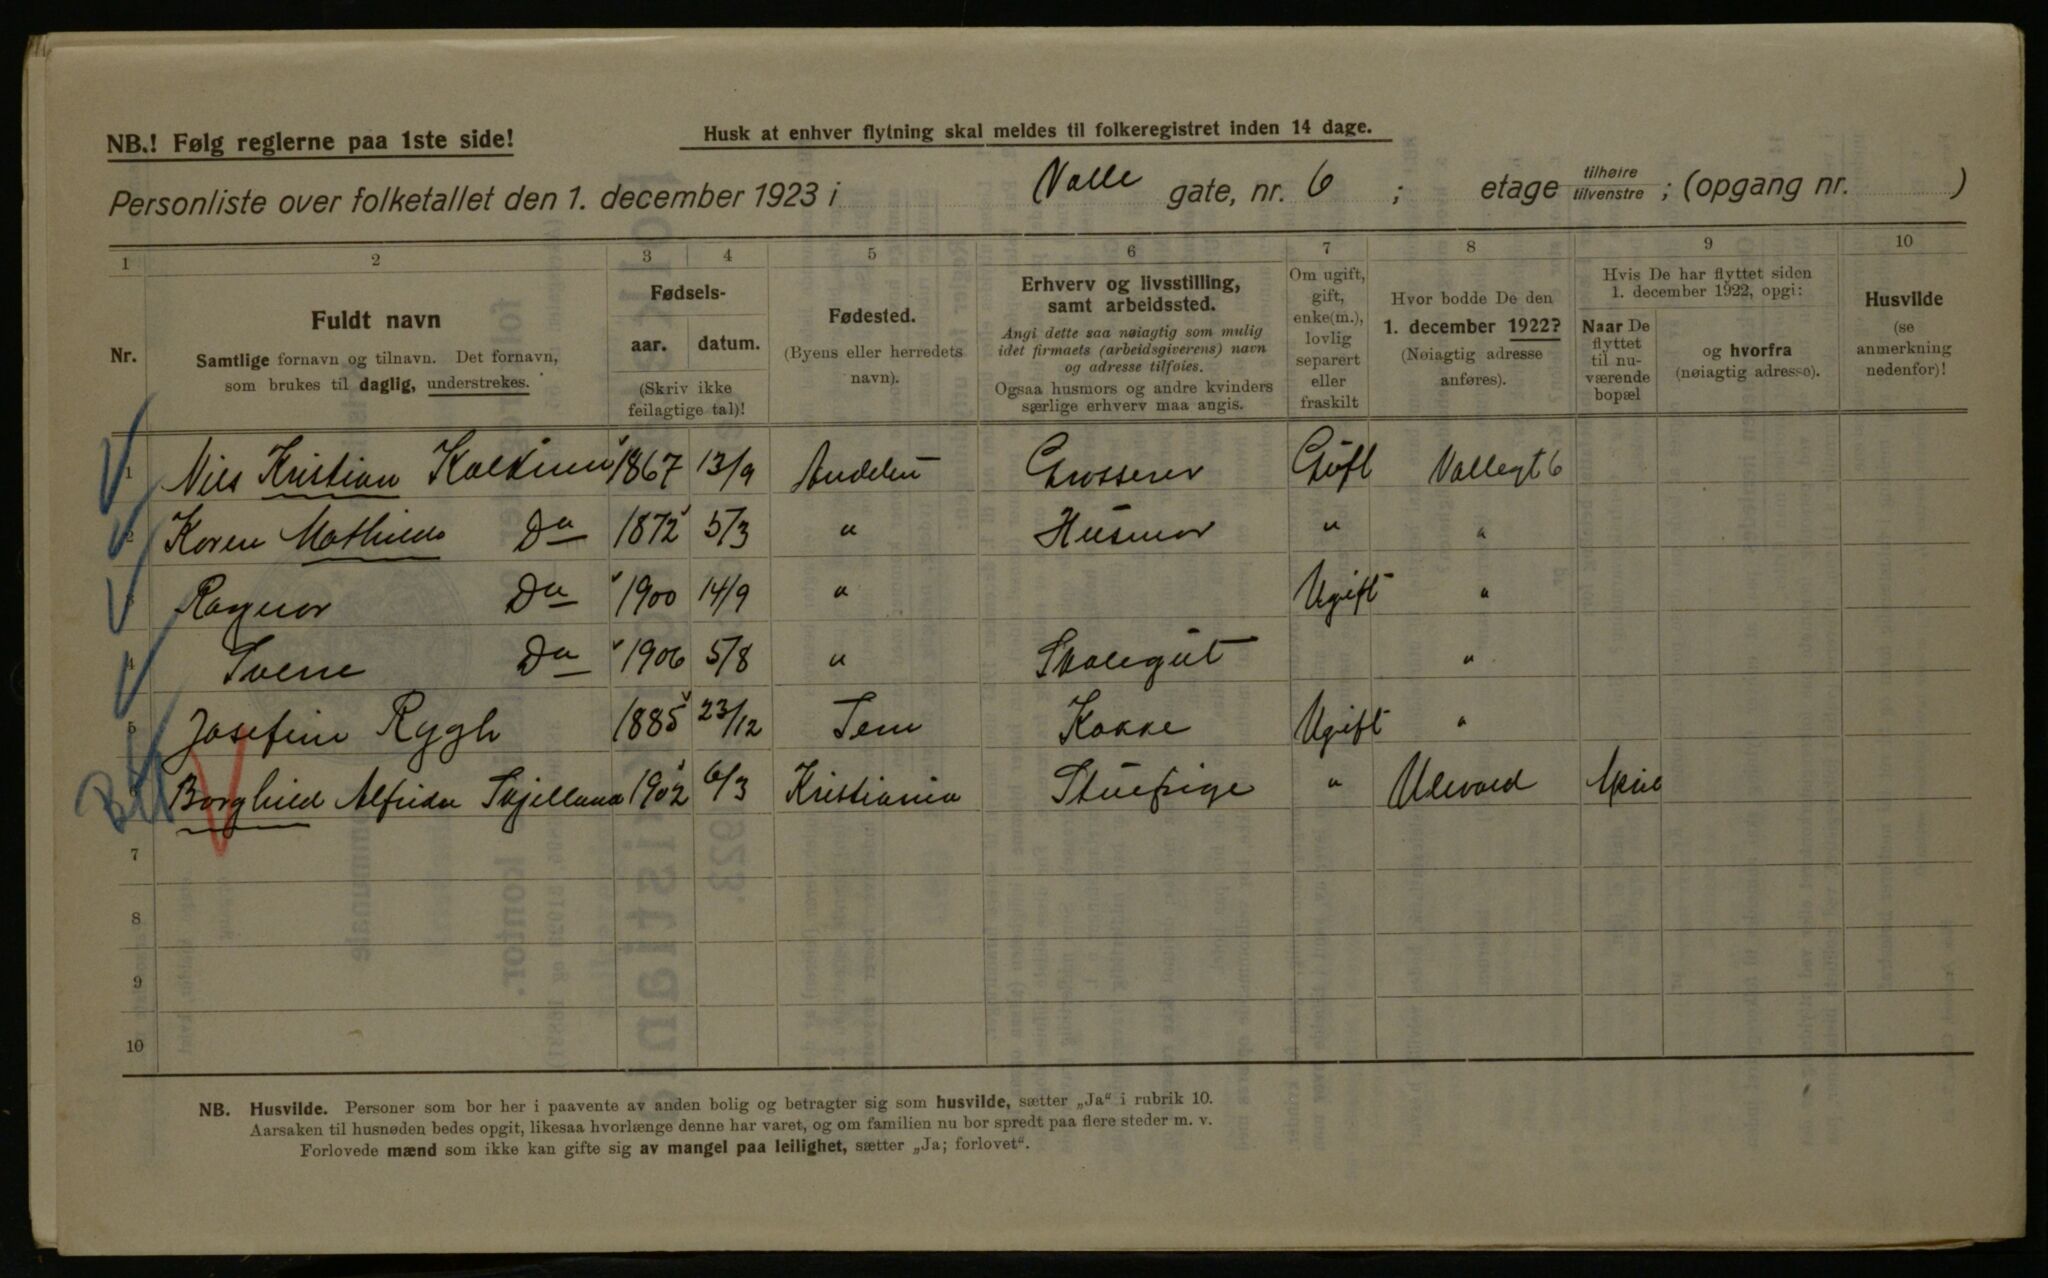 NB.! Følg reglerne paa 1ste side!
Husk at enhver flytning skal meldes til folkeregistret inden 14 dage.
Personliste over folketallet den 1. december 1923 i Valle gate, nr. 6 ; etage tilhøire tilvenstre ; (opgang nr. )
1 2 3 4 5 6 7 8 9 10
Nr.
Fuldt navn
Samtlige fornavn og tilnavn. Det fornavn,
som brukes til daglig, understrekes.
Fødsels-
aar. datum.
(Skriv ikke
feilagtige tal)!
Fødested.
(Byens eller herredets
navn).
Erhverv og livsstilling,
samt arbeidssted.
Angi dette saa nøiagtig som mulig
idet firmaets (arbeidsgiverens) navn
og adresse tilføies.
Ogsaa husmors og andre kvinders
særlige erhverv maa angis.
Om ugift,
gift,
enke(m.),
lovlig
separert
eller
fraskilt
Hvor bodde De den
1. december 1922?
(Nøiagtig adresse
anføres).
Hvis De har flyttet siden
1. december 1922, opgi:
Naar De
flyttet
til nu-
værende
bopæl
og hvorfra
(nøiagtig adresse).
Husvilde
(se
anmerkning
nedenfor)!
1 Nils Kristian 1867 13/9 Grosserer Gift Vallegt 6
2 Karen Mathilde Do 1872 5/3 " Husmor " "
3 Ragnar Do 1900 14/9 " Ugift "
4 Sverre Do 1906 5/8 " Skolegut "
5 Josefine Rygh 1885 23/12 Kokke Ugift "
6 Borghild Alfrida 1902 6/3 Kristiania Stuepige " Ulevold April
7
8
9
10
NB. Husvilde. Personer som bor her i paavente av anden bolig og betragter sig som husvilde, sætter „Ja“ i rubrik 10.
Aarsaken til husnøden bedes opgit, likesaa hvorlænge denne har varet, og om familien nu bor spredt paa flere steder m. v.
Forlovede mænd som ikke kan gifte sig av mangel paa leilighet, sætter „Ja; forlovet“.